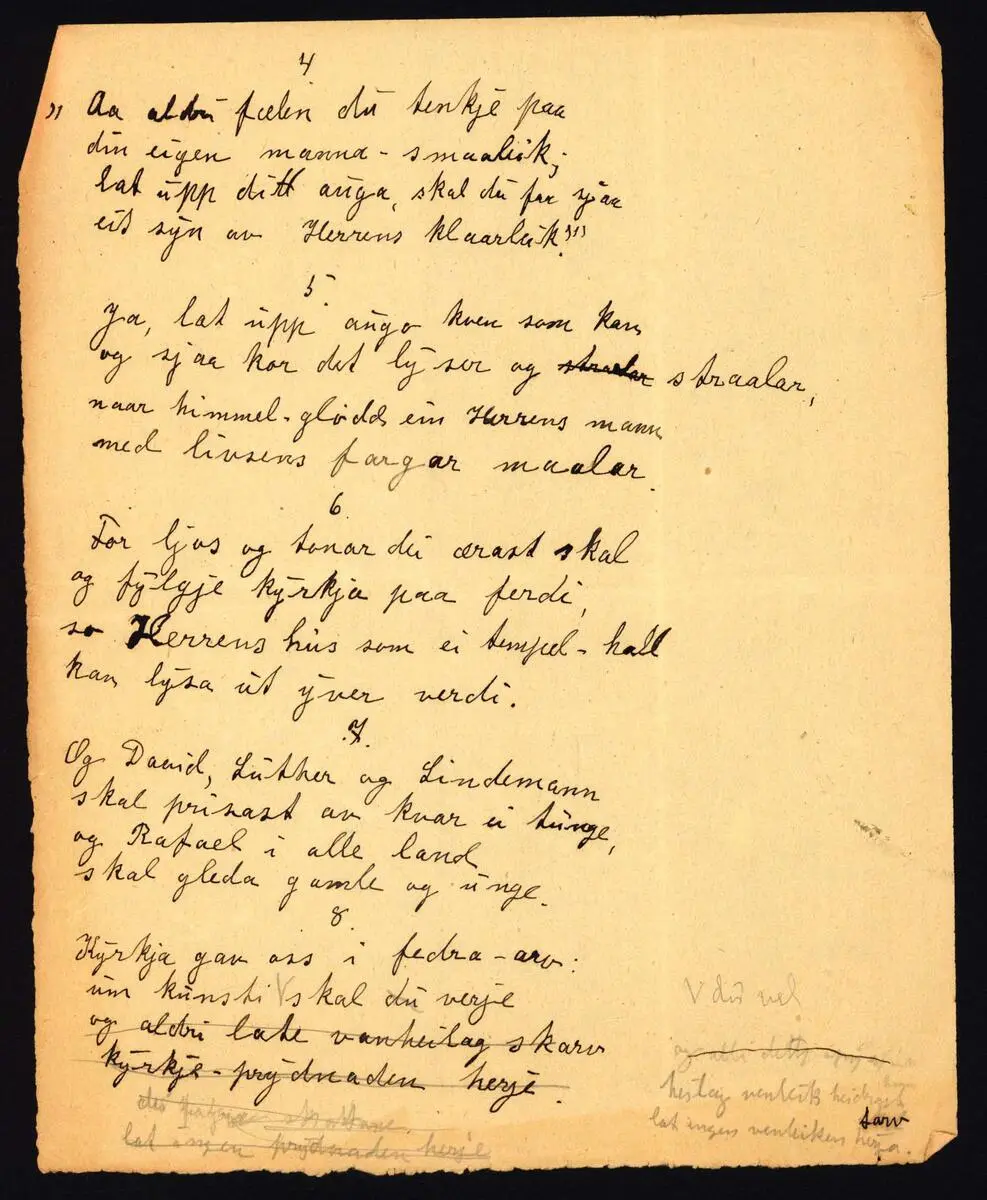 4
" Aa aldri fælen du tenkje paa
din eigen manna-smaaleik;
lat upp ditt auga, skal du faa sjaa
eit syn av Herrens klaarleik!"
5.
Ja, lat upp augo kven som kan
og sjaa kor det lyser og straalar straalar,
naar himmel-glødd ein Herrens mann
med livsens fargar maalar.
6.
For ljos og tonar dei ærast skal
og fylgje kyrkja paa ferdi,
so Herrens hus som ei tempel-hall
kan lysa ut yver verdi.
7.
Og David, Luther og Lindemann
skal prisast av kvar ei tunge,
og Rafael i alle land
skal gleda gamle og unge.
8.
Kyrkja gav oss i fedra-arv:
um kunsti V skal du verje
V du vel
og aldri late vanheilag skarv
kyrkje-prydnaden herje.
lat ingen prydnaden herje
og alle
heilag venleik
tarv
lat ingen venleiken herja.